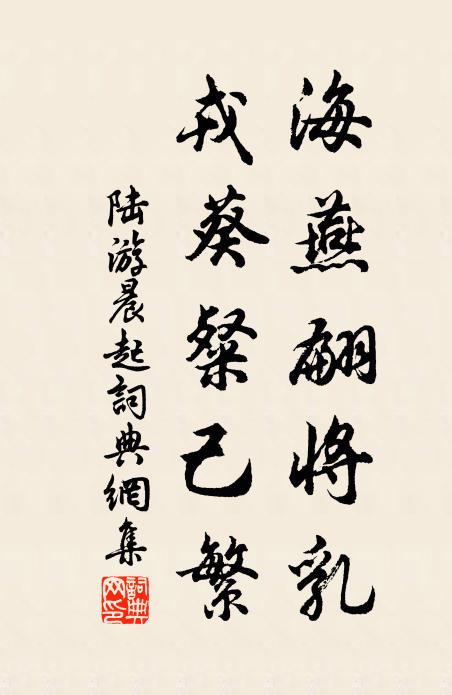 海燕翩將乳
戎葵粲已繁
陸游晨起詞典網集
詞典網印